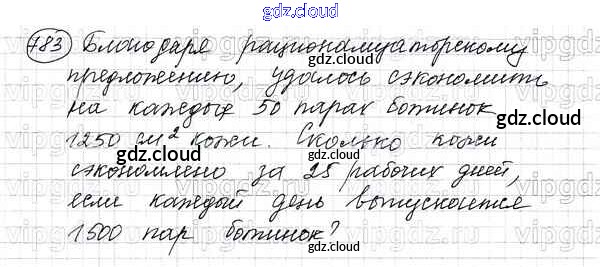 gdz.cloud
783 Благодаря рационализаторскому
gdz.cloud
предложению, удалось сэкономить
на каждых 50 парах ботинок
gdz.cloud
1250 см² кожи. Сколько кожи
gdz.cloud
gdz.cloud
сэкономлено за 25 рабочих дней,
gdz.cloud
если каждый день выпускается
1500 пар ботинок?
gdz.cloud
gdz.cloud